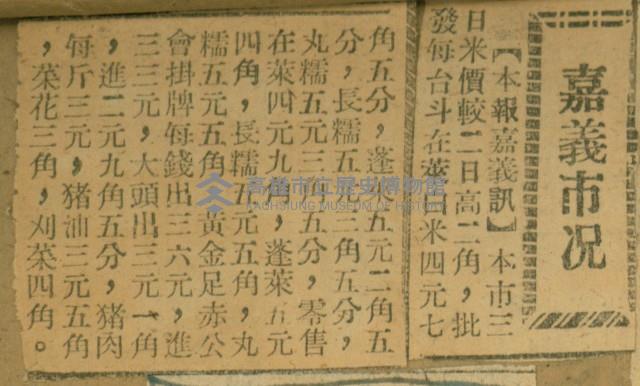 嘉義市况
【本報嘉義訊】本市三
日米價較二日高二角，批
發每台斗在萊米四元七
角五分，蓬萊五元二角五
分，長糯五元三角五分，
丸糯五元三角五分，零售
在萊四元九角，蓬萊五元
四角，長糯五元五角，丸
糯五元五角，黃金足赤公
會掛牌每錢出三六元，進
三三元，大頭出三元一角
，進二元九角五分，豬肉
每斤三元，豬油三元五角
，菜花三角，刈菜四角。
高雄市立歷史博物館
KAOHSIUNG MUSEUM OF HISTORY